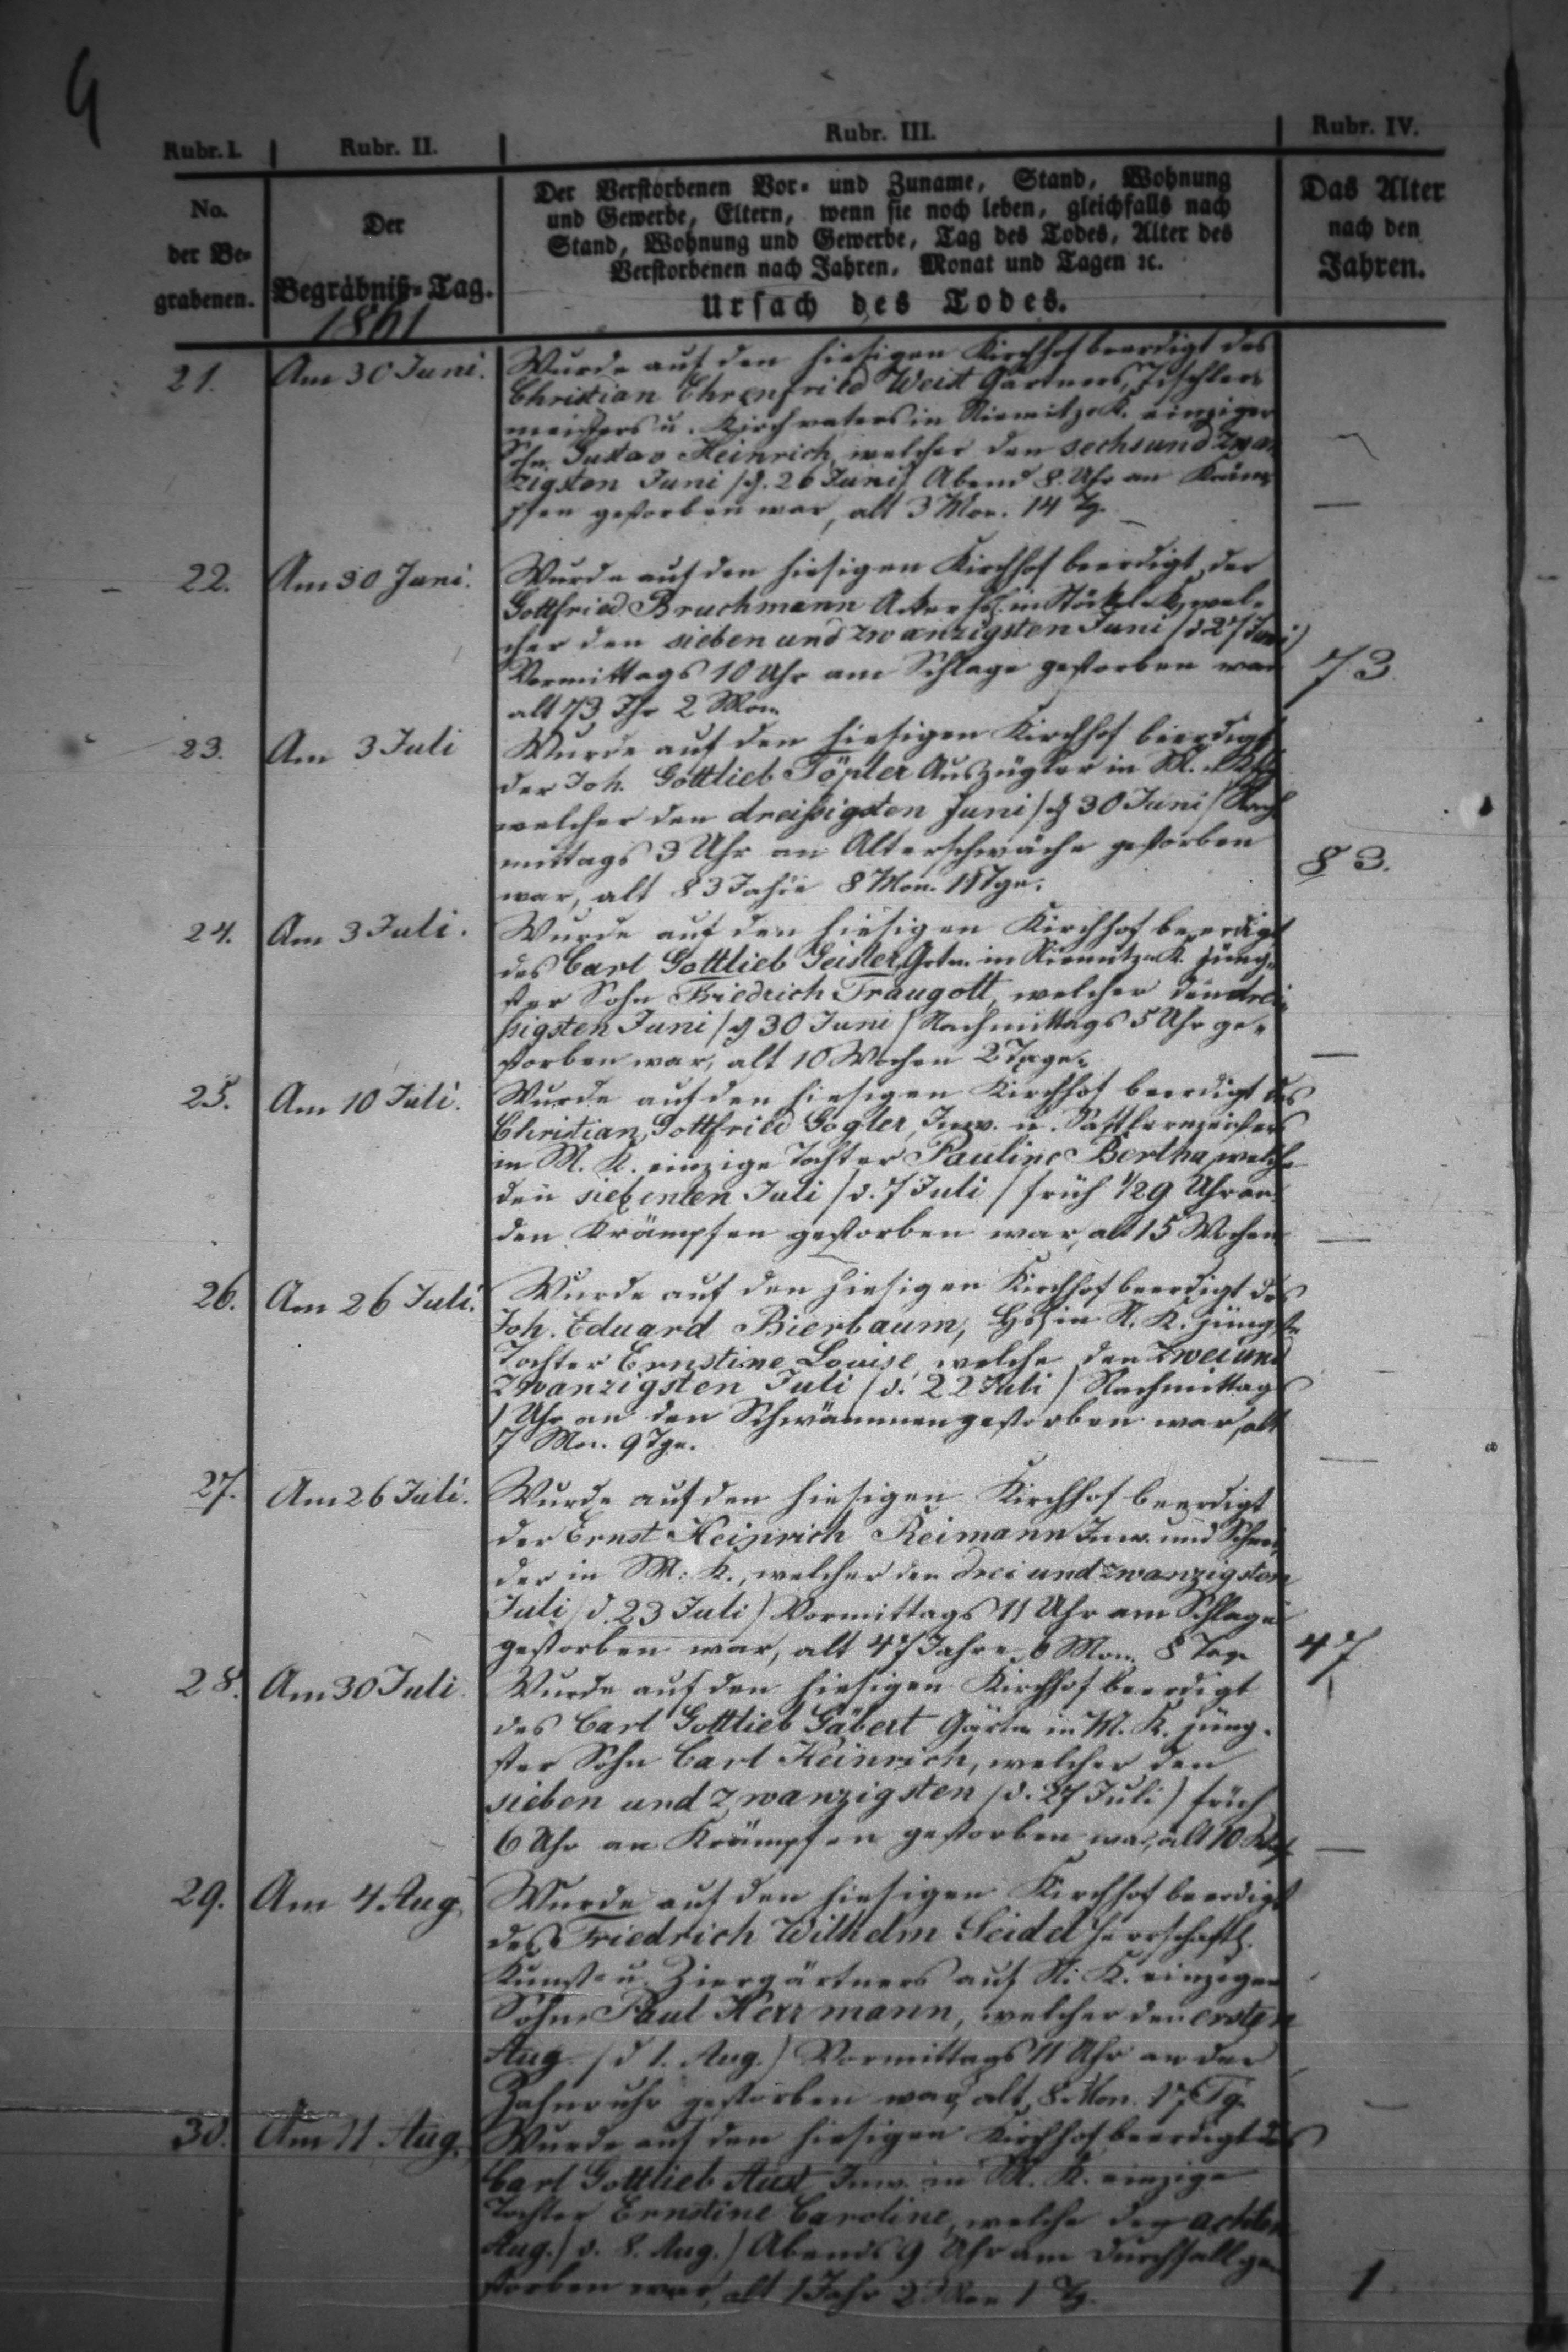 4
Rubr. I. Rubr. II. Rubr. III. Rubr. IV.
No. der Be= grabenen.
Der Begräbniß=Tag.
1861
Der Verstorbenen Vor= und Zuname, Stand, Wohnung
und Gewerbe, Eltern, wenn sie noch leben, gleichfalls nach
Stand, Wohnung und Gewerbe, Tag des Todes, Alter des
Verstorbenen nach Jahren, Monat und Tagen ꝛc.
Ursach des Todes.
Das Alter
nach den
Jahren.
21. Am 30 Juni. Wurde auf den hiesigen Kirchhof beerdigt des
Christian Ehrenfried Weist Gärtners, Tischler=
meisters u. Kirchvaters in einziger
Sohn Gustav Heinrich, welcher den sechsund zwan
zigsten Juni /d. 26 Juni/ Abend 8. Uhr an Kräm=
pfen gestorben war, alt 3 Mon. 14 Tg. —
22. Am 30 Juni. Wurde auf den hiesigen Kirchhof beerdigt der
Gottfried Bruchmann in wel=
cher den sieben und zwanzigsten Juni /d 27 Juni/
Vormittags 10 Uhr am Schlage gestorben war 73.
alt 73 Jhr 2 Mon.
23. Am 3 Juli Wurde auf den hiesigen Kirchhof beerdigt
der Joh. Gottlieb Töpler Auszügler in
welcher den dreißigsten Juni /d 30 Juni/ Nach
mittags 3 Uhr an Alterschwäche gestorben
war, alt 83 Jahre 8 Mon. Tge. 83.
24. Am 3 Juli. Wurde auf den hiesigen Kirchhof beerdigt
des Carl Gottlieb Geisler, Grtn. in jüng=
ster Sohn Friedrich Traugott, welcher den drei
ßigsten Juni /d 30 Juni/ Nachmittags 5 Uhr ge=
storben war, alt 10 Wochen 2 Tage. —
25. Am 10 Juli. Wurde auf den hiesigen Kirchhof beerdigt des
Christian Gottfried Gogler, Inw. u.
in M. K. einzige Tochter Pauline Bertha, welche
den siebenten Juli /d. 7 Juli/ früh 1/29 Uhr an
den Krämpfen gestorben war, alt 15 Wochen —
26. Am 26 Juli. Wurde auf den hiesigen Kirchhof beerdigt des
Joh. Eduard Bierbaum, in N. K. jüngste
Tochter Ernstine Louise, welche den zwei und
zwanzigsten Juli /d. 22 Juli/ Nachmittags
1 Uhr an den Schwämmen gestorben war, alt
7 Mon. 9 Tge. —
27. Am 26 Juli. Wurde auf den hiesigen Kirchhof beerdigt
der Ernst Heinrich Reimann Inw. und Schnei
der in M. K., welcher den drei und zwanzigsten
Juli /d. 23 Juli/ Vormittags 11 Uhr am Schlage
gestorben war, alt 47 Jahre 6 Mon. 8 Tage 47
28. Am 30 Juli. Wurde auf den hiesigen Kirchhof beerdigt
des Carl Gottlieb Gäbert Gärtn. in M. K. jüng=
ster Sohn Carl Heinrich, welcher den
sieben und zwanzigsten /d. 27 Juli/ früh
6 Uhr an Krämpfen gestorben war, alt 10 —
29. Am 4 Aug. Wurde auf den hiesigen Kirchhof beerdigt
des Friedrich Wilhelm Seidel herrschaftl.
Kunst= u. Ziergärtners auf N. K. einzigen
Sohn Paul Herrmann, welcher den ersten
Aug. /d 1. Aug./ Vormittags 11 Uhr an der
Zahnruhr gestorben war, alt 8 Mon. 17 Tg. —
30. Am 11 Aug. Wurde auf den hiesigen Kirchhof beerdigt des
Carl Gottlieb Aust Inw. in M. K. einzige
Tochter Ernstine Caroline, welche den achten
Aug. /d. 8. Aug./ Abends 9 Uhr am Durchfall ge=
storben war, alt 1 Jahr 2 Mon 1 Tg. 1